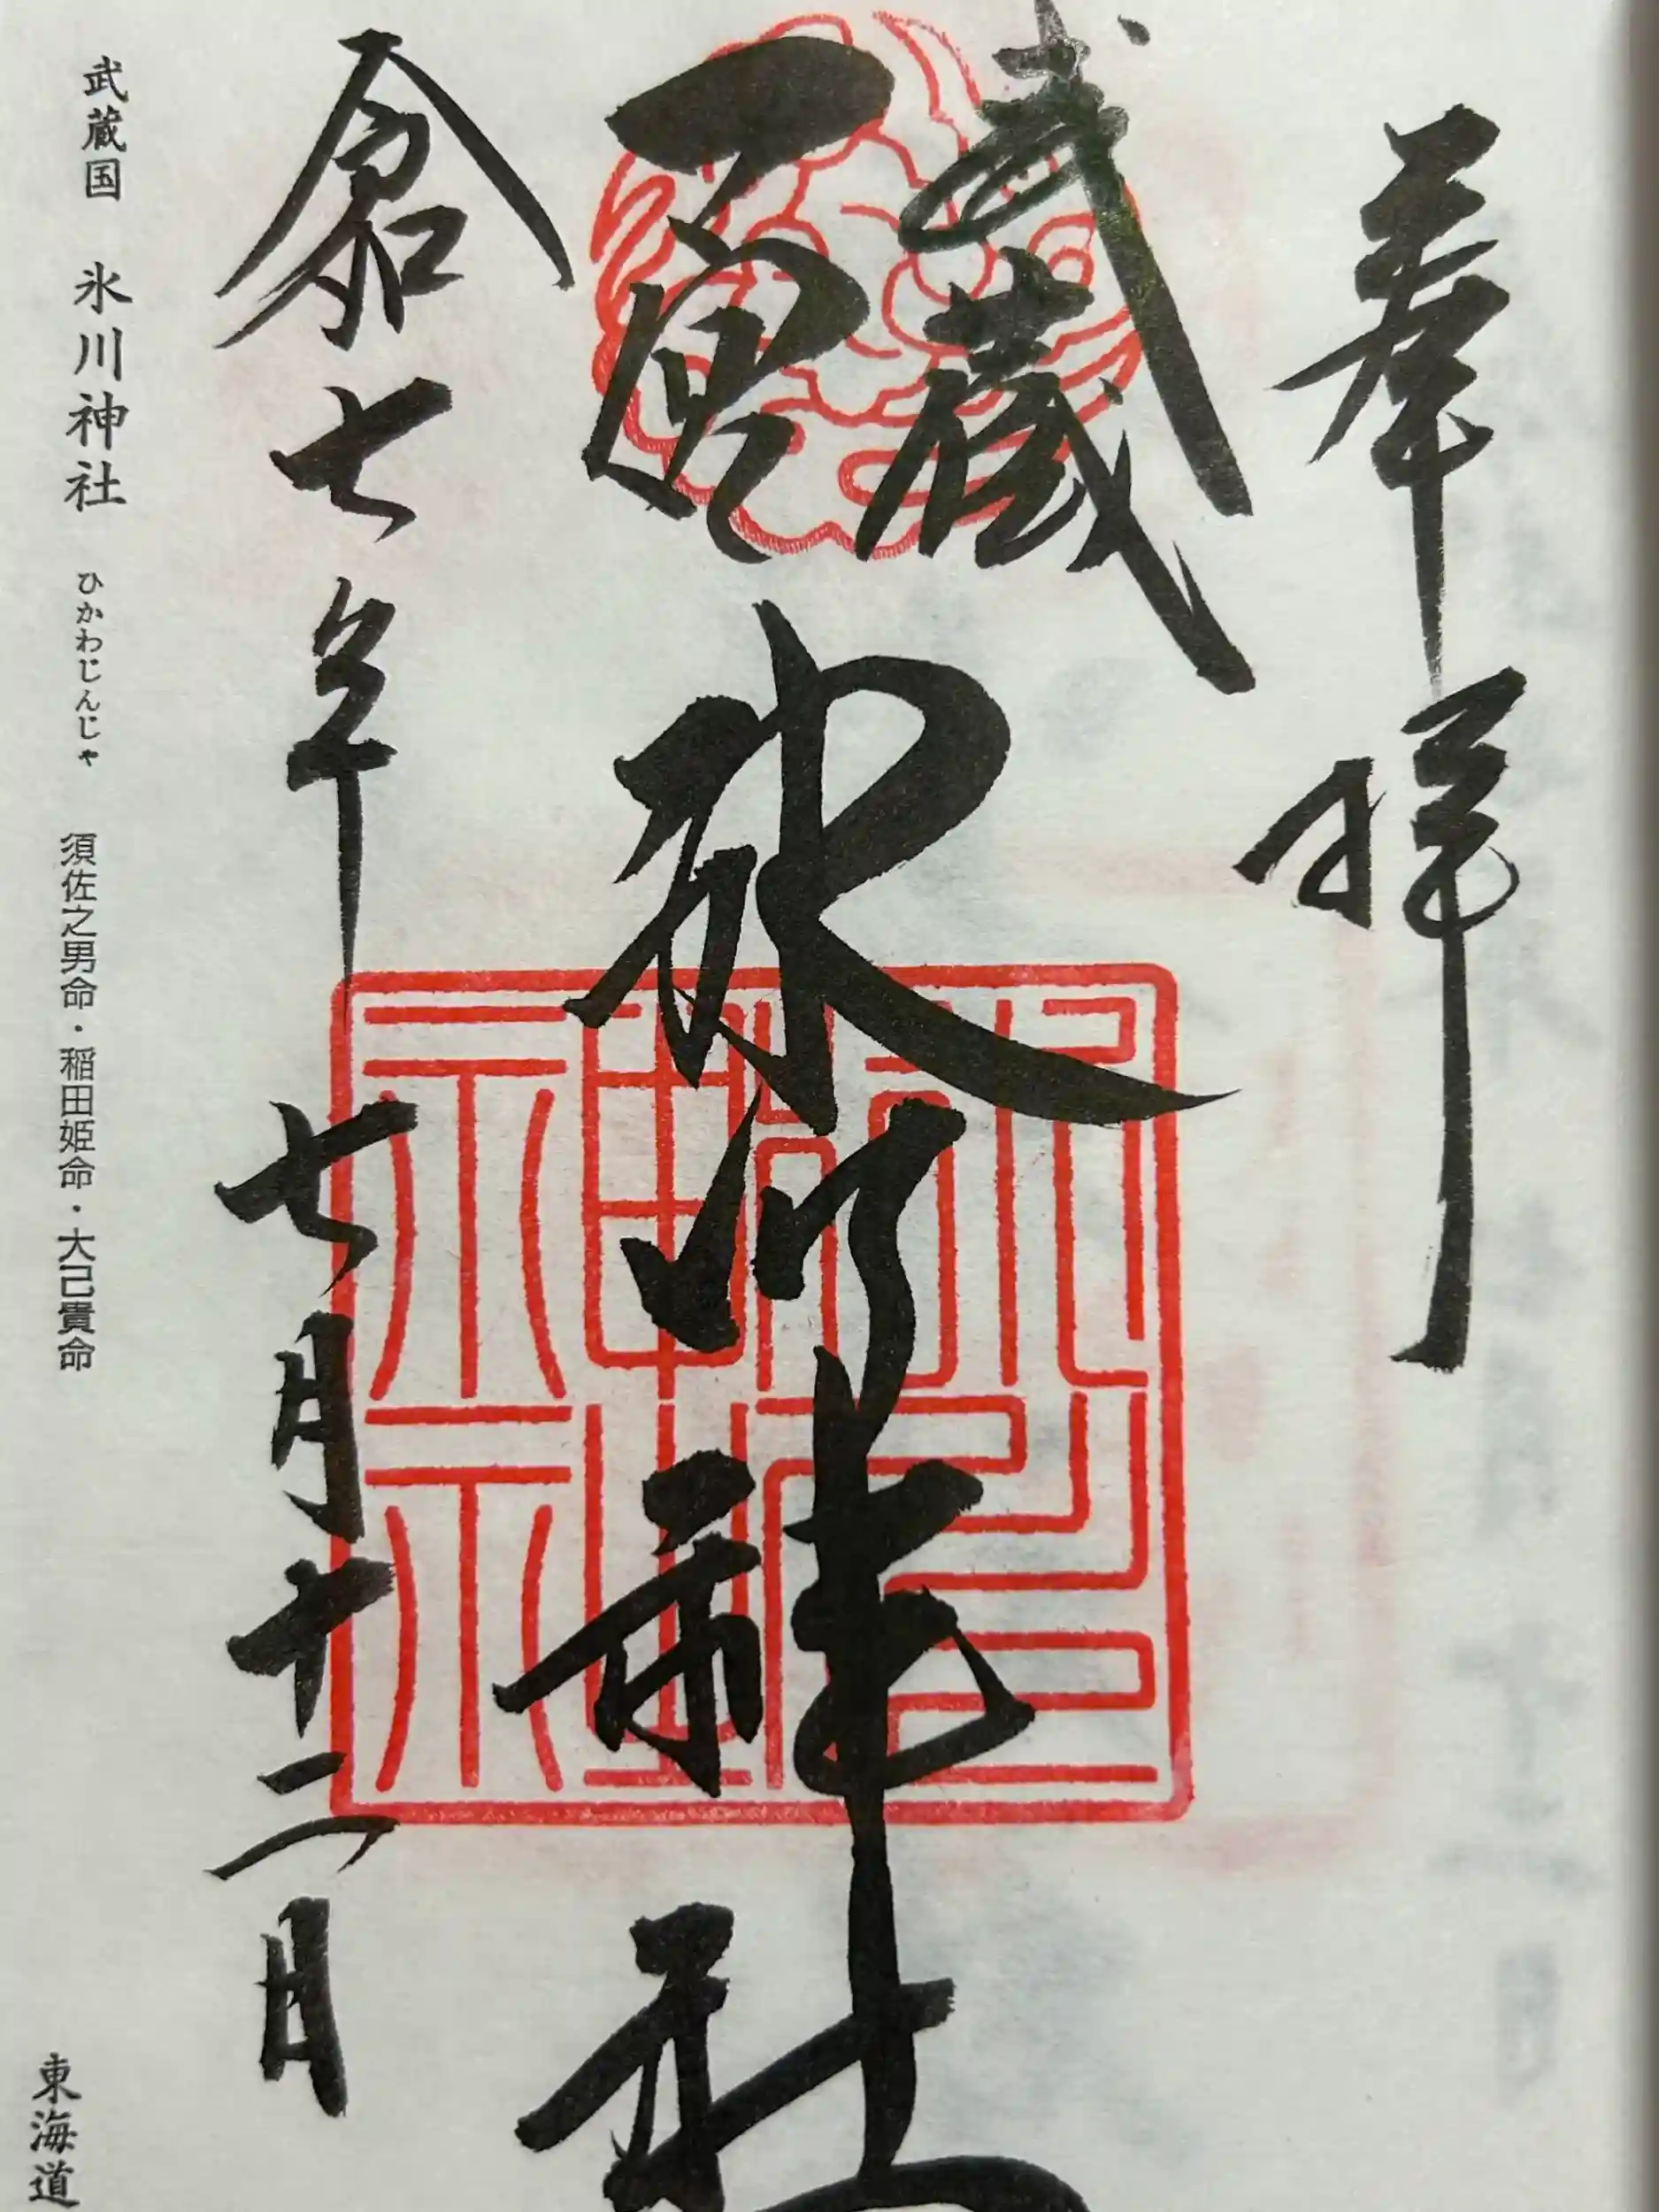 奉拝
武蔵
一宮
氷川神社
令和七年七月十二日
武蔵国 氷川神社 ひかわじんじゃ 須佐之男命・稲田姫命・大己貴命
東海道